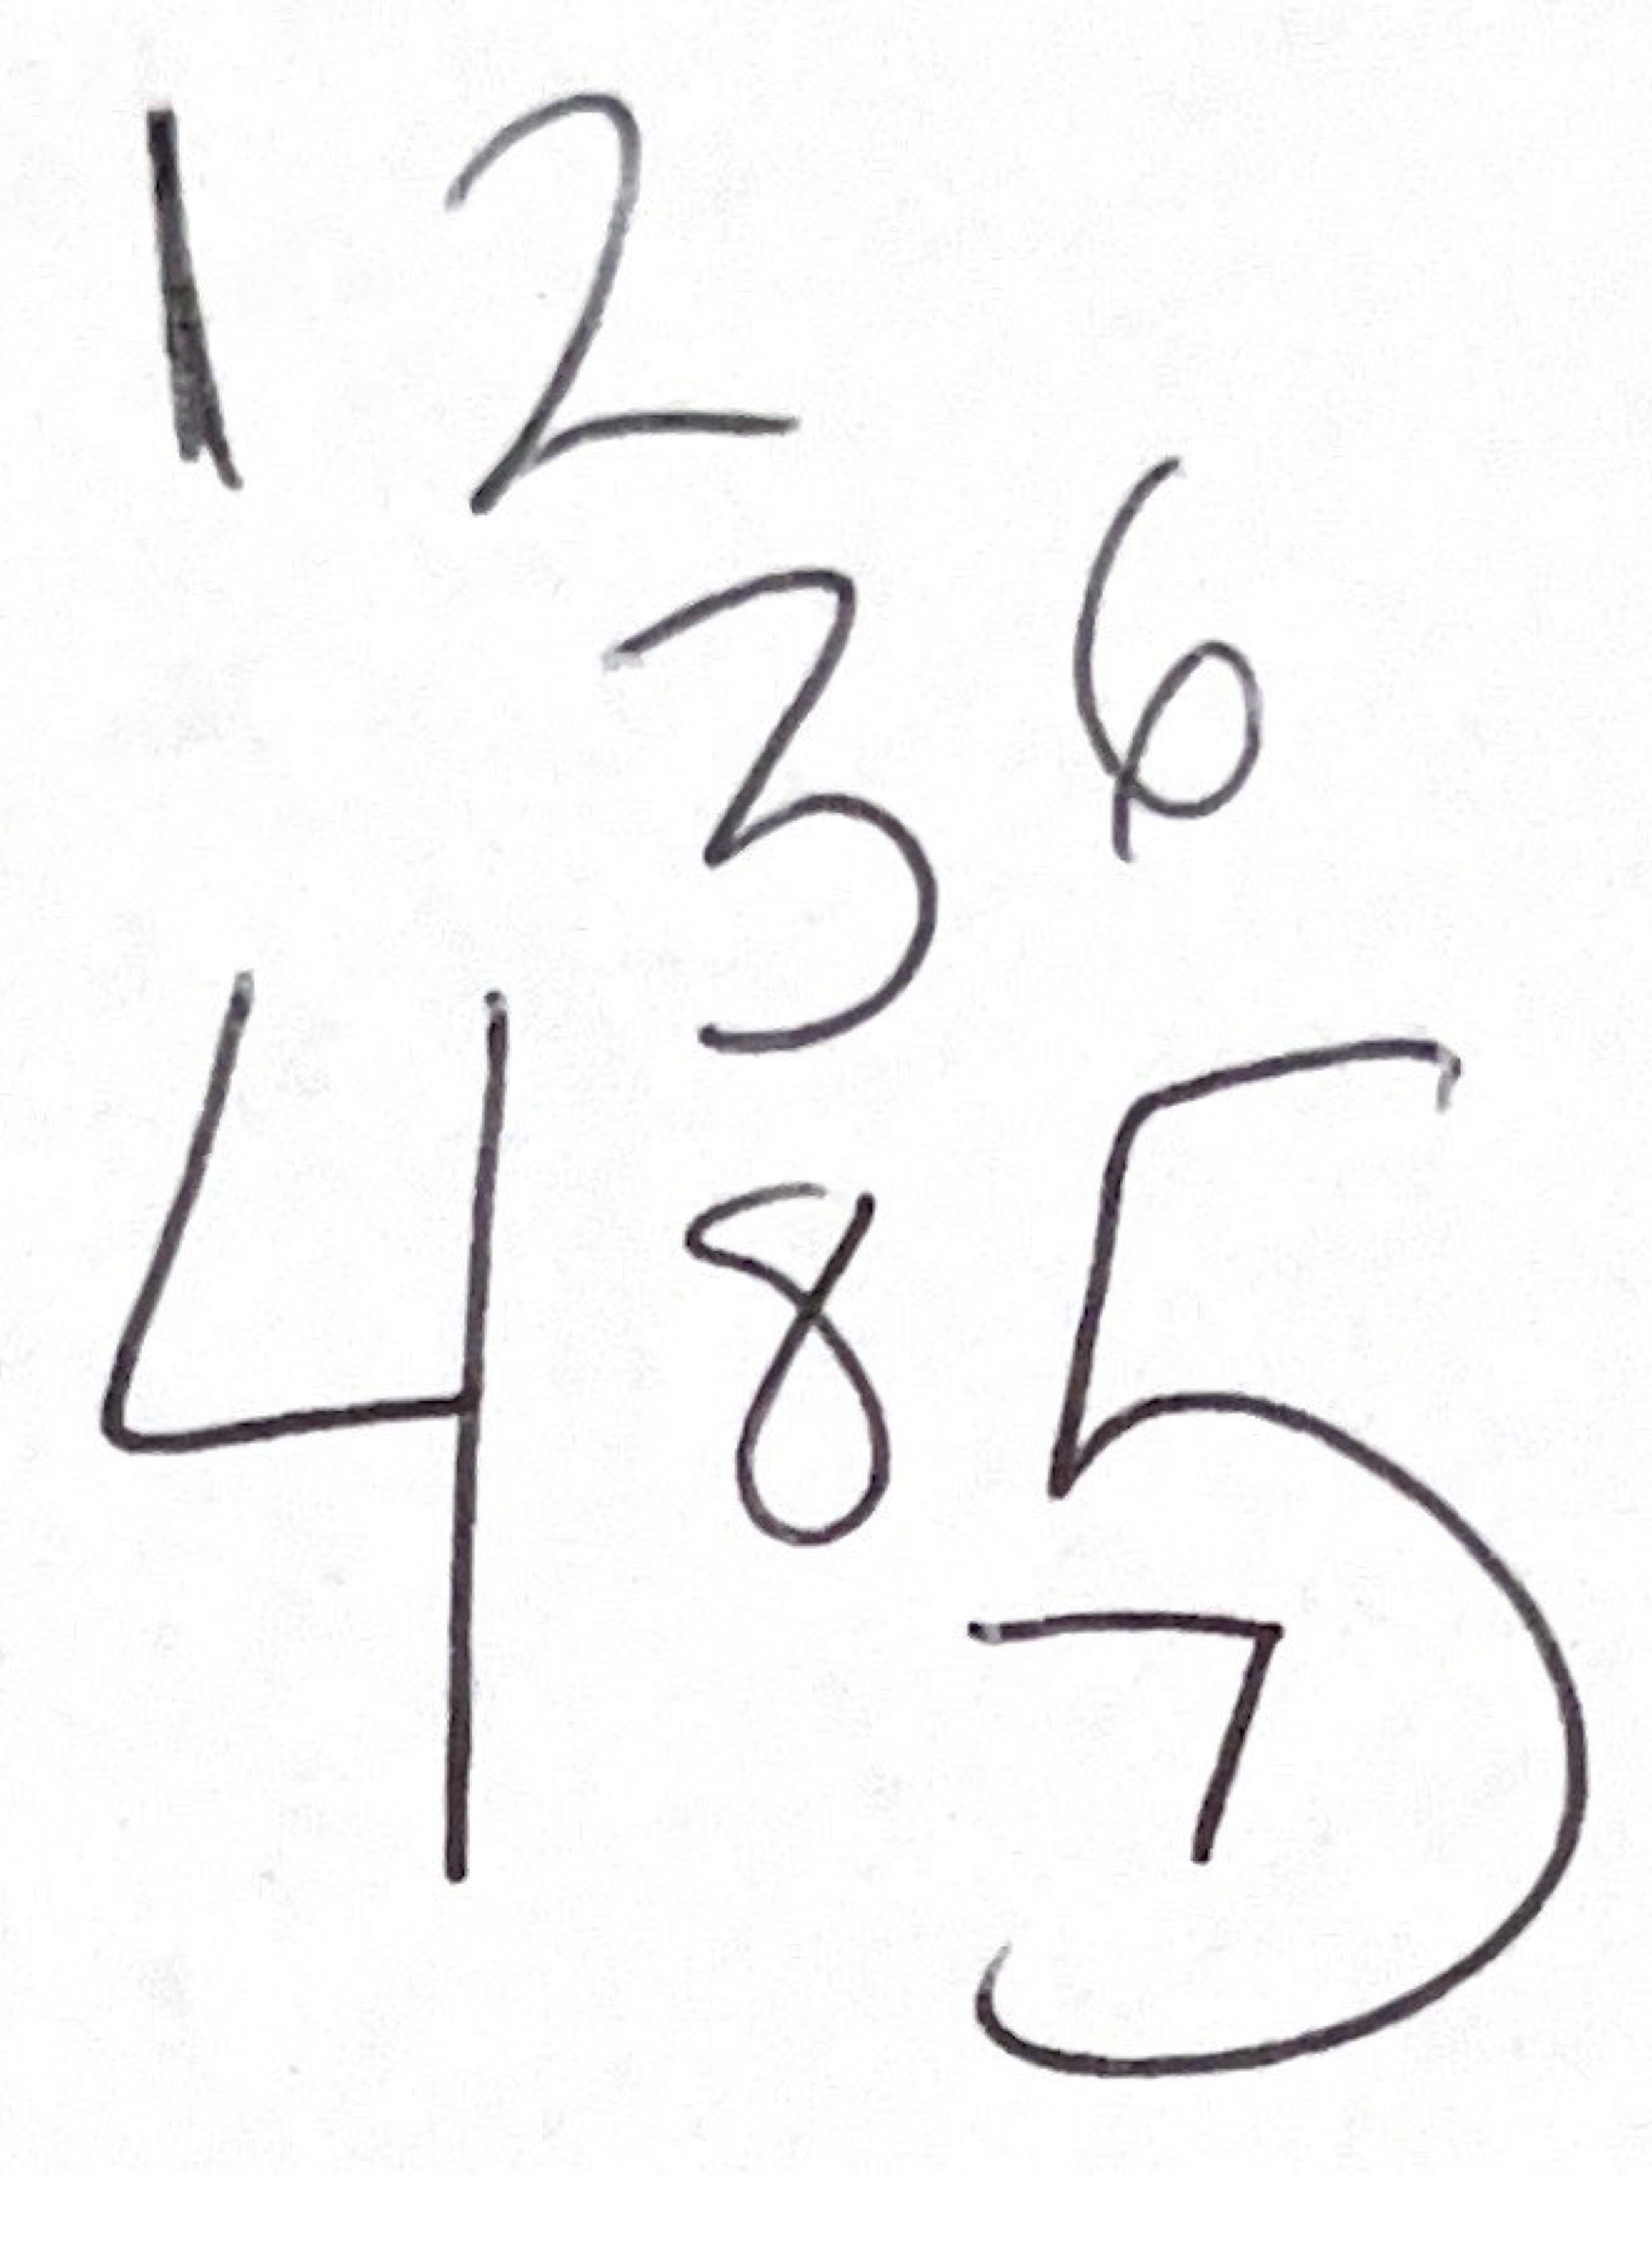 1 2
3 6
4 8 5
7